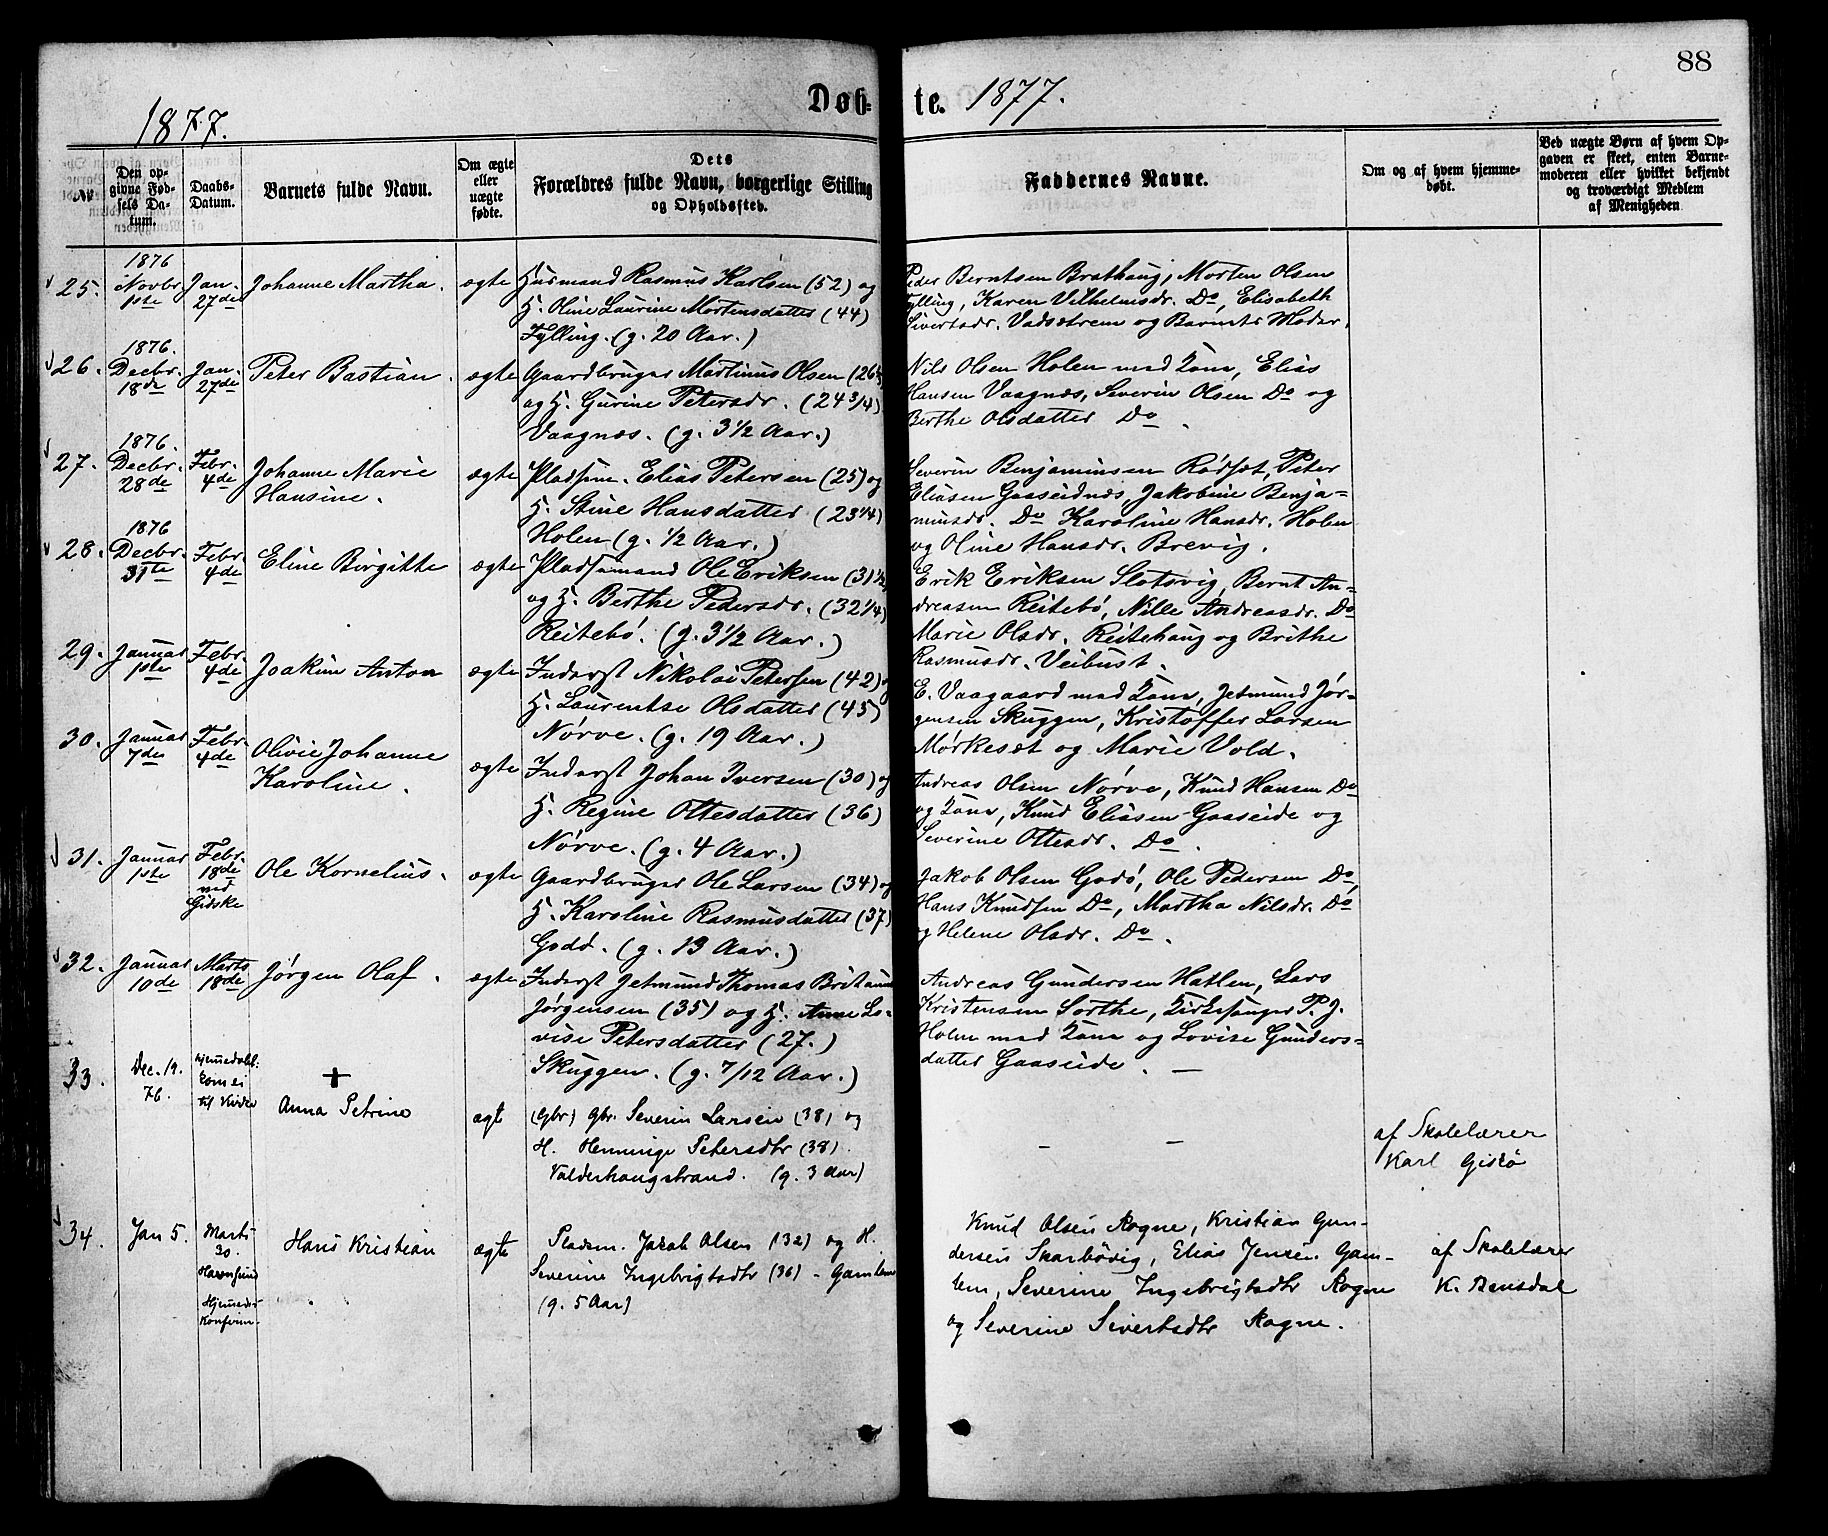 88
1877.
Døb-
te. 1877.
No
Den op-
givne Fød-
sels Da-
tum.
Daabs-
Datum.
Barnets fulde Navn.
Om ægte
eller
uægte
fødte.
Dets
Forældres fulde Navn, borgerlige Stilling
og Opholdssted.
Faddernes Navne.
Om og af hvem hjemme-
døbt.
Ved uægte Børn af hvem Op-
gaven er skeet, enten Barne-
moderen eller hvilket bekjendt
og troværdigt Medlem
af Menigheden
25.
1876
Novbr
1ste
Jan.
27de
Johanne Martha.
ægte
Husmand Rasmus Karlsen (52) og
H. Oline Laurine Mortensdatter (44)
Fylling. (g. 20 Aar.)
Peder Berntsen Brathaug, Morten Olsen
Fylling, Karen Vilhelmsdr. Do, Elisabeth
Sivertsdr. Vadsætrem og Barnets Moder.
26.
1876.
Decbr.
18de
Jan.
27de
Peter Bastian.
ægte
Gaardbruger Martinus Olsen (26
og H. Gurine Petersdr. (24 3/4)
Vaagnæs. (g. 3 1/2 Aar.)
Nils Olsen Holen med Kone, Elias
Hansen Vaagnæs, Severin Olsen Do og
Berthe Olsdatter Do.
27.
1876.
Decbr.
28de
Febr.
4de
Johanne Marie
Hansine.
ægte
Pladsm. Elias Petersen (25) og
H. Stine Hansdatter (23 1/4)
Holen (g. 1/2 Aar.)
Severin Benjaminsen Rödset, Peter
Eliasen Gaaseidnæs, Jakobine Benja=
minsdr. Do Karoline Hansdr. Holen
og Oline Hansdr. Brevig.
28.
1876
Decbr.
31te
Febr.
4de
Eline Birgitte
ægte
Pladsemand Ole Eriksen (31 1/2
og H. Berthe Pedersdr. (32 1/4)
Reitebö. (g. 3 1/2 Aar.)
Erik Eriksen Slotsvig, Bernt An=
dreasen Reitebö, Nille Andreasdr. Do
Marie Olsdr. Reitehaug og Brithe
Rasmusdr. Veibust.
29.
Januar
1ste
Febr.
4de
Joakim Anton
ægte
Inderst Nikolai Petersen (42) og
H. Laurentse Olsdatter (45)
Nørve. (g. 19 Aar.)
E. Vaagaard med Kone, Jetmund Jør-
gensen Skuggen, Kristoffer Larsen
Mørkeset og Marie Vold.
30.
Januar
7de
Febr.
4de
Olivie Johanne
Karoline.
ægte
Inderst Johan Iversen (30) og
H. Regine Ottesdatter (36)
Nørve. (g. 4 Aar.)
Andreas Olsen Nørve, Knud Hansen Do
og Kone, Knud Eliasen Gaaseide og
Severine Ottesdr. Do.
31.
Januar
1ste
Febr.
18de
ved
Gidske
Ole Kornelius.
ægte
Gaardbruger Ole Larsen (34) og
H. Karoline Rasmusdatter (37)
Godö. (g. 13 Aar.)
Jakob Olsen Godö, Ole Pedersen Do,
Hans Knudsen Do, Martha Nilsdr. Do
og Helene Olsdr. Do.
32.
Januar
10de
Marts
18de
Jörgen Olaf.
ægte
Inderst Jetmund Thomas Britanus
Jørgensen (35) og H. Anne Lo-
vise Petersdatter (27.)
Skuggen. (g. 7/12 Aar.)
Andreas Gundersen Hatlen, Lars
Kristensen Sorthe, Kirkesanger P. J.
Holm med Kone og Lovise Gunders=
datter Gaaseide.
33.
Dec. 19.
76.
hjemmedøbt.
kom ei
til Kirke
+
Anna Petrine
ægt
(Gbr) Gbr. Severin Larsen (38) og
H. Henninge Petersdtr (38)
Valderhaugstrand. (g. 3 Aar)
– –
af Skolelærer
Karl Giskø
34.
Jan 5.
Marts
30.
Havnsund
Hjemmedøb
Konfirm-
Hans Kristian
ægte
Pladsm. Jakob Olsen (32) og H.
Severine Ingebrigtsdtr (36) - Gamlem
(g. 5 Aar)
Knud Olsen Rogne, Kristian Gun-
dersen Skarbövig, Elias Jensen Gam-
lem, Severine Ingebrigtsdtr Rogne
og Severine Sivertsdtr Rogne.
af Skolelærer
K. Bensdal